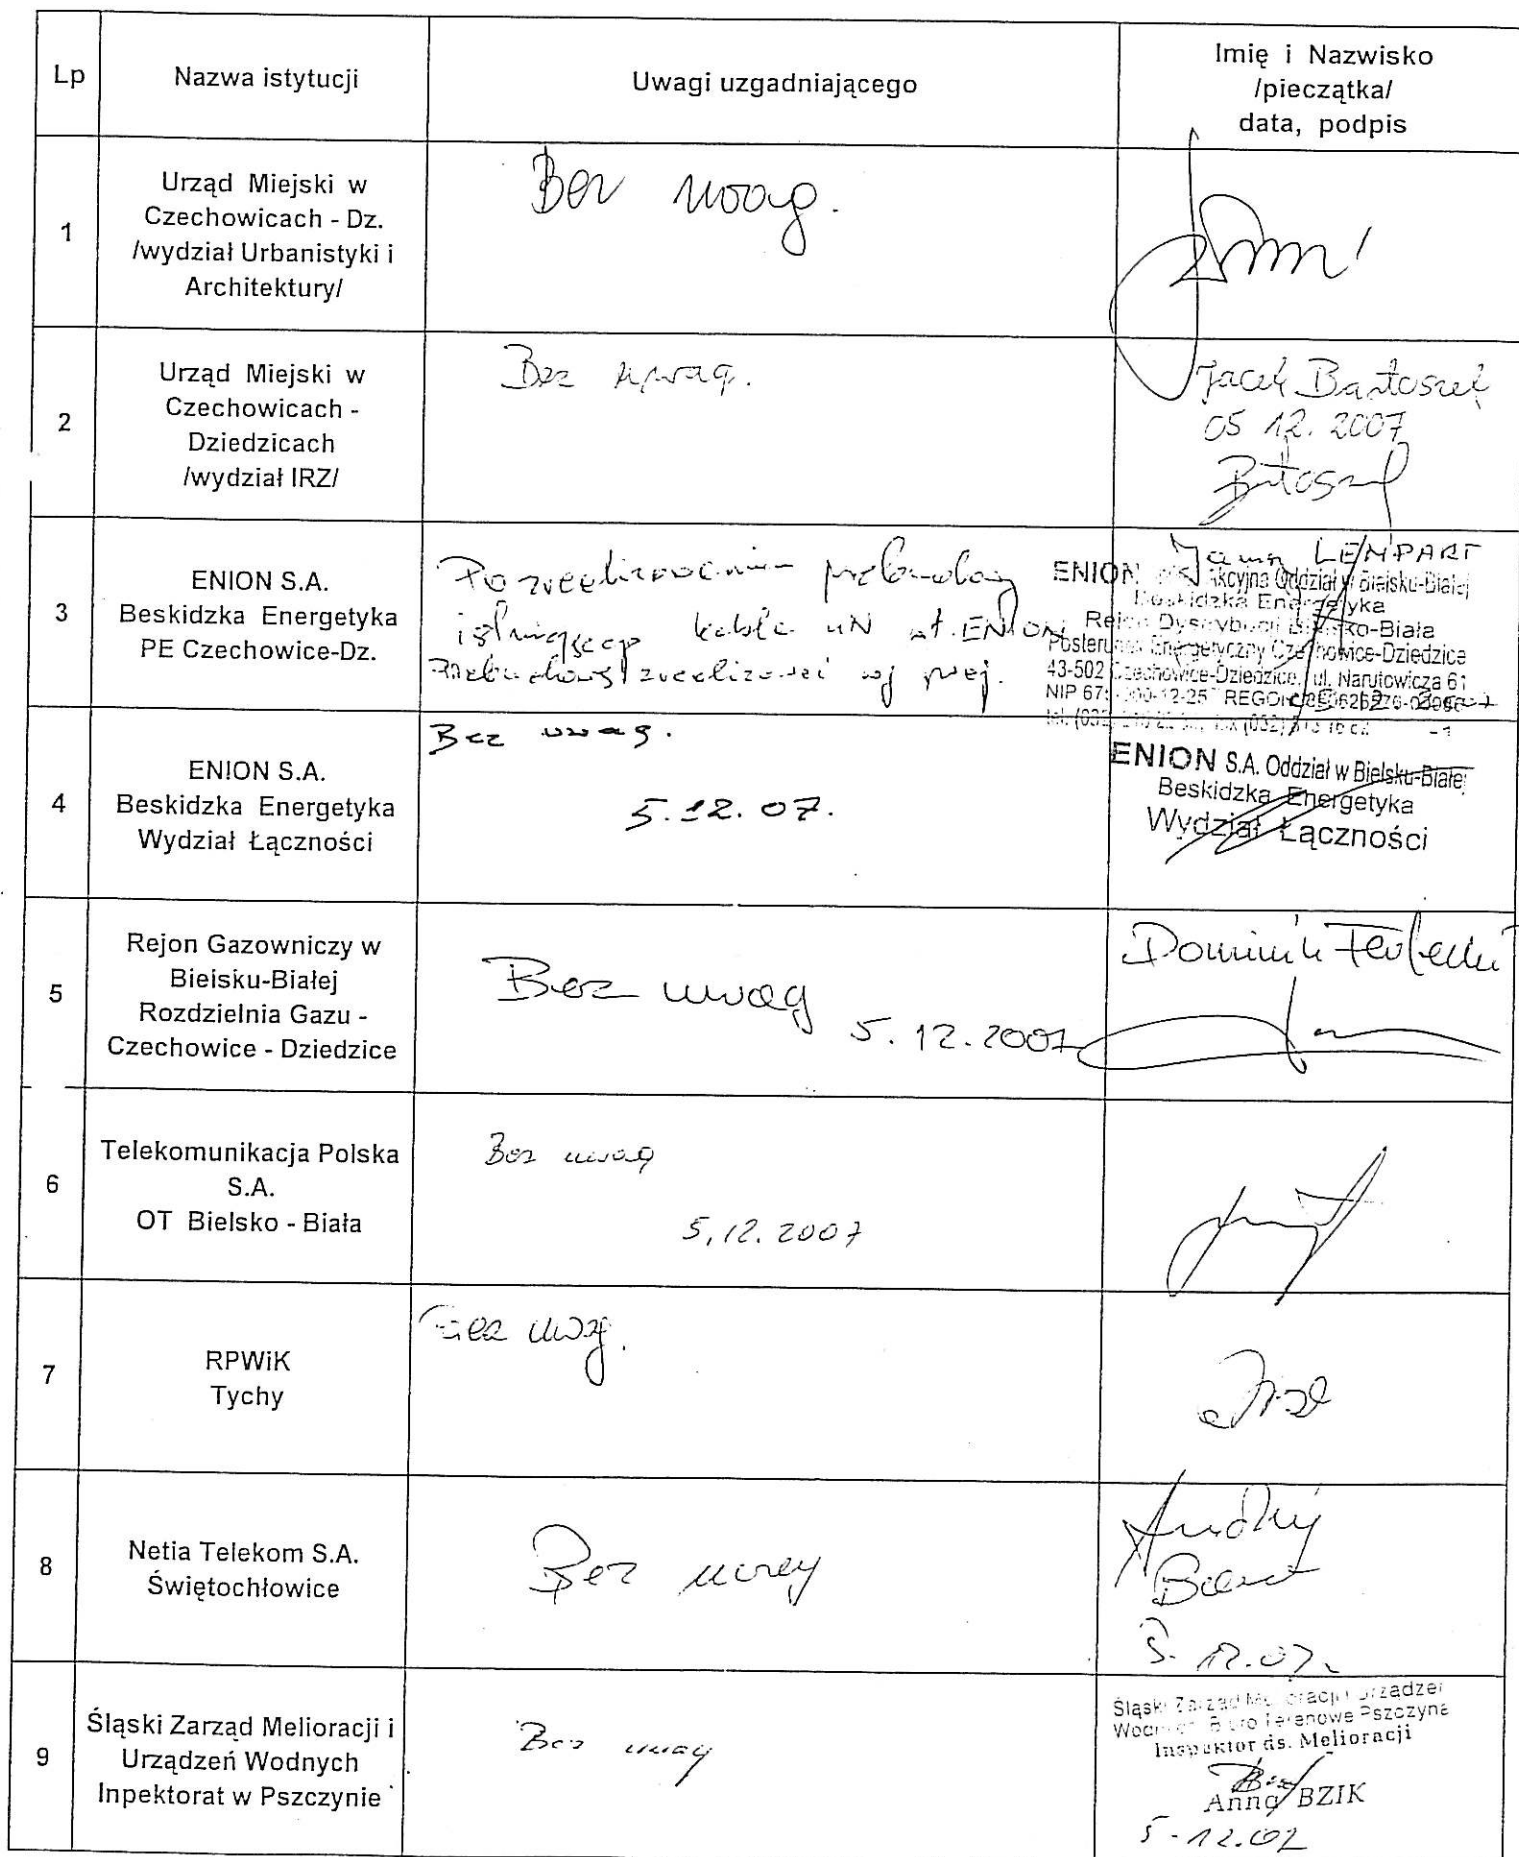 Lp
Nazwa istytucji
Uwagi uzgadniającego
Imię i Nazwisko
/pieczątka/
data, podpis
1
Urząd Miejski w
Czechowicach - Dz.
/wydział Urbanistyki i
Architektury/
Bez uwag.
2
Urząd Miejski w
Czechowicach -
Dziedzicach
/wydział IRZ/
Bez uwag.
Jacek Bartoszek
05 12. 2007
3
ENION S.A.
Beskidzka Energetyka
PE Czechowice-Dz.
Po zrealizowaniu przebudowy
istniejącego kabla nN wł. ENION
Przebudowę zrealizować wg proj.
LEMPART
ENION Akcyjna Oddział w Bielsku-Białej
Beskidzka Energetyka
Rejon Dystrybucji Bielsko-Biała
Posterunek Energetyczny Czechowice-Dziedzice
43-502 Czechowice-Dziedzice, ul. Narutowicza 61
4
ENION S.A.
Beskidzka Energetyka
Wydział Łączności
Bez uwag.
5.12.07.
ENION S.A. Oddział w Bielsku-Białej
Beskidzka Energetyka
Wydział Łączności
5
Rejon Gazowniczy w
Bielsku-Białej
Rozdzielnia Gazu -
Czechowice - Dziedzice
Bez uwag
5.12.2007
Dominik
6
Telekomunikacja Polska
S.A.
OT Bielsko - Biała
Bez uwag
5.12.2007
7
RPWiK
Tychy
Bez uwag.
8
Netia Telekom S.A.
Świętochłowice
Bez uwag
Andrzej
5.12.07.
9
Śląski Zarząd Melioracji i
Urządzeń Wodnych
Inpektorat w Pszczynie
Bez uwag
Śląski Zarząd Melioracji i Urządzeń
Wodnych Biuro Terenowe Pszczyna
Inspektor ds. Melioracji
Anna BZIK
5-12.07